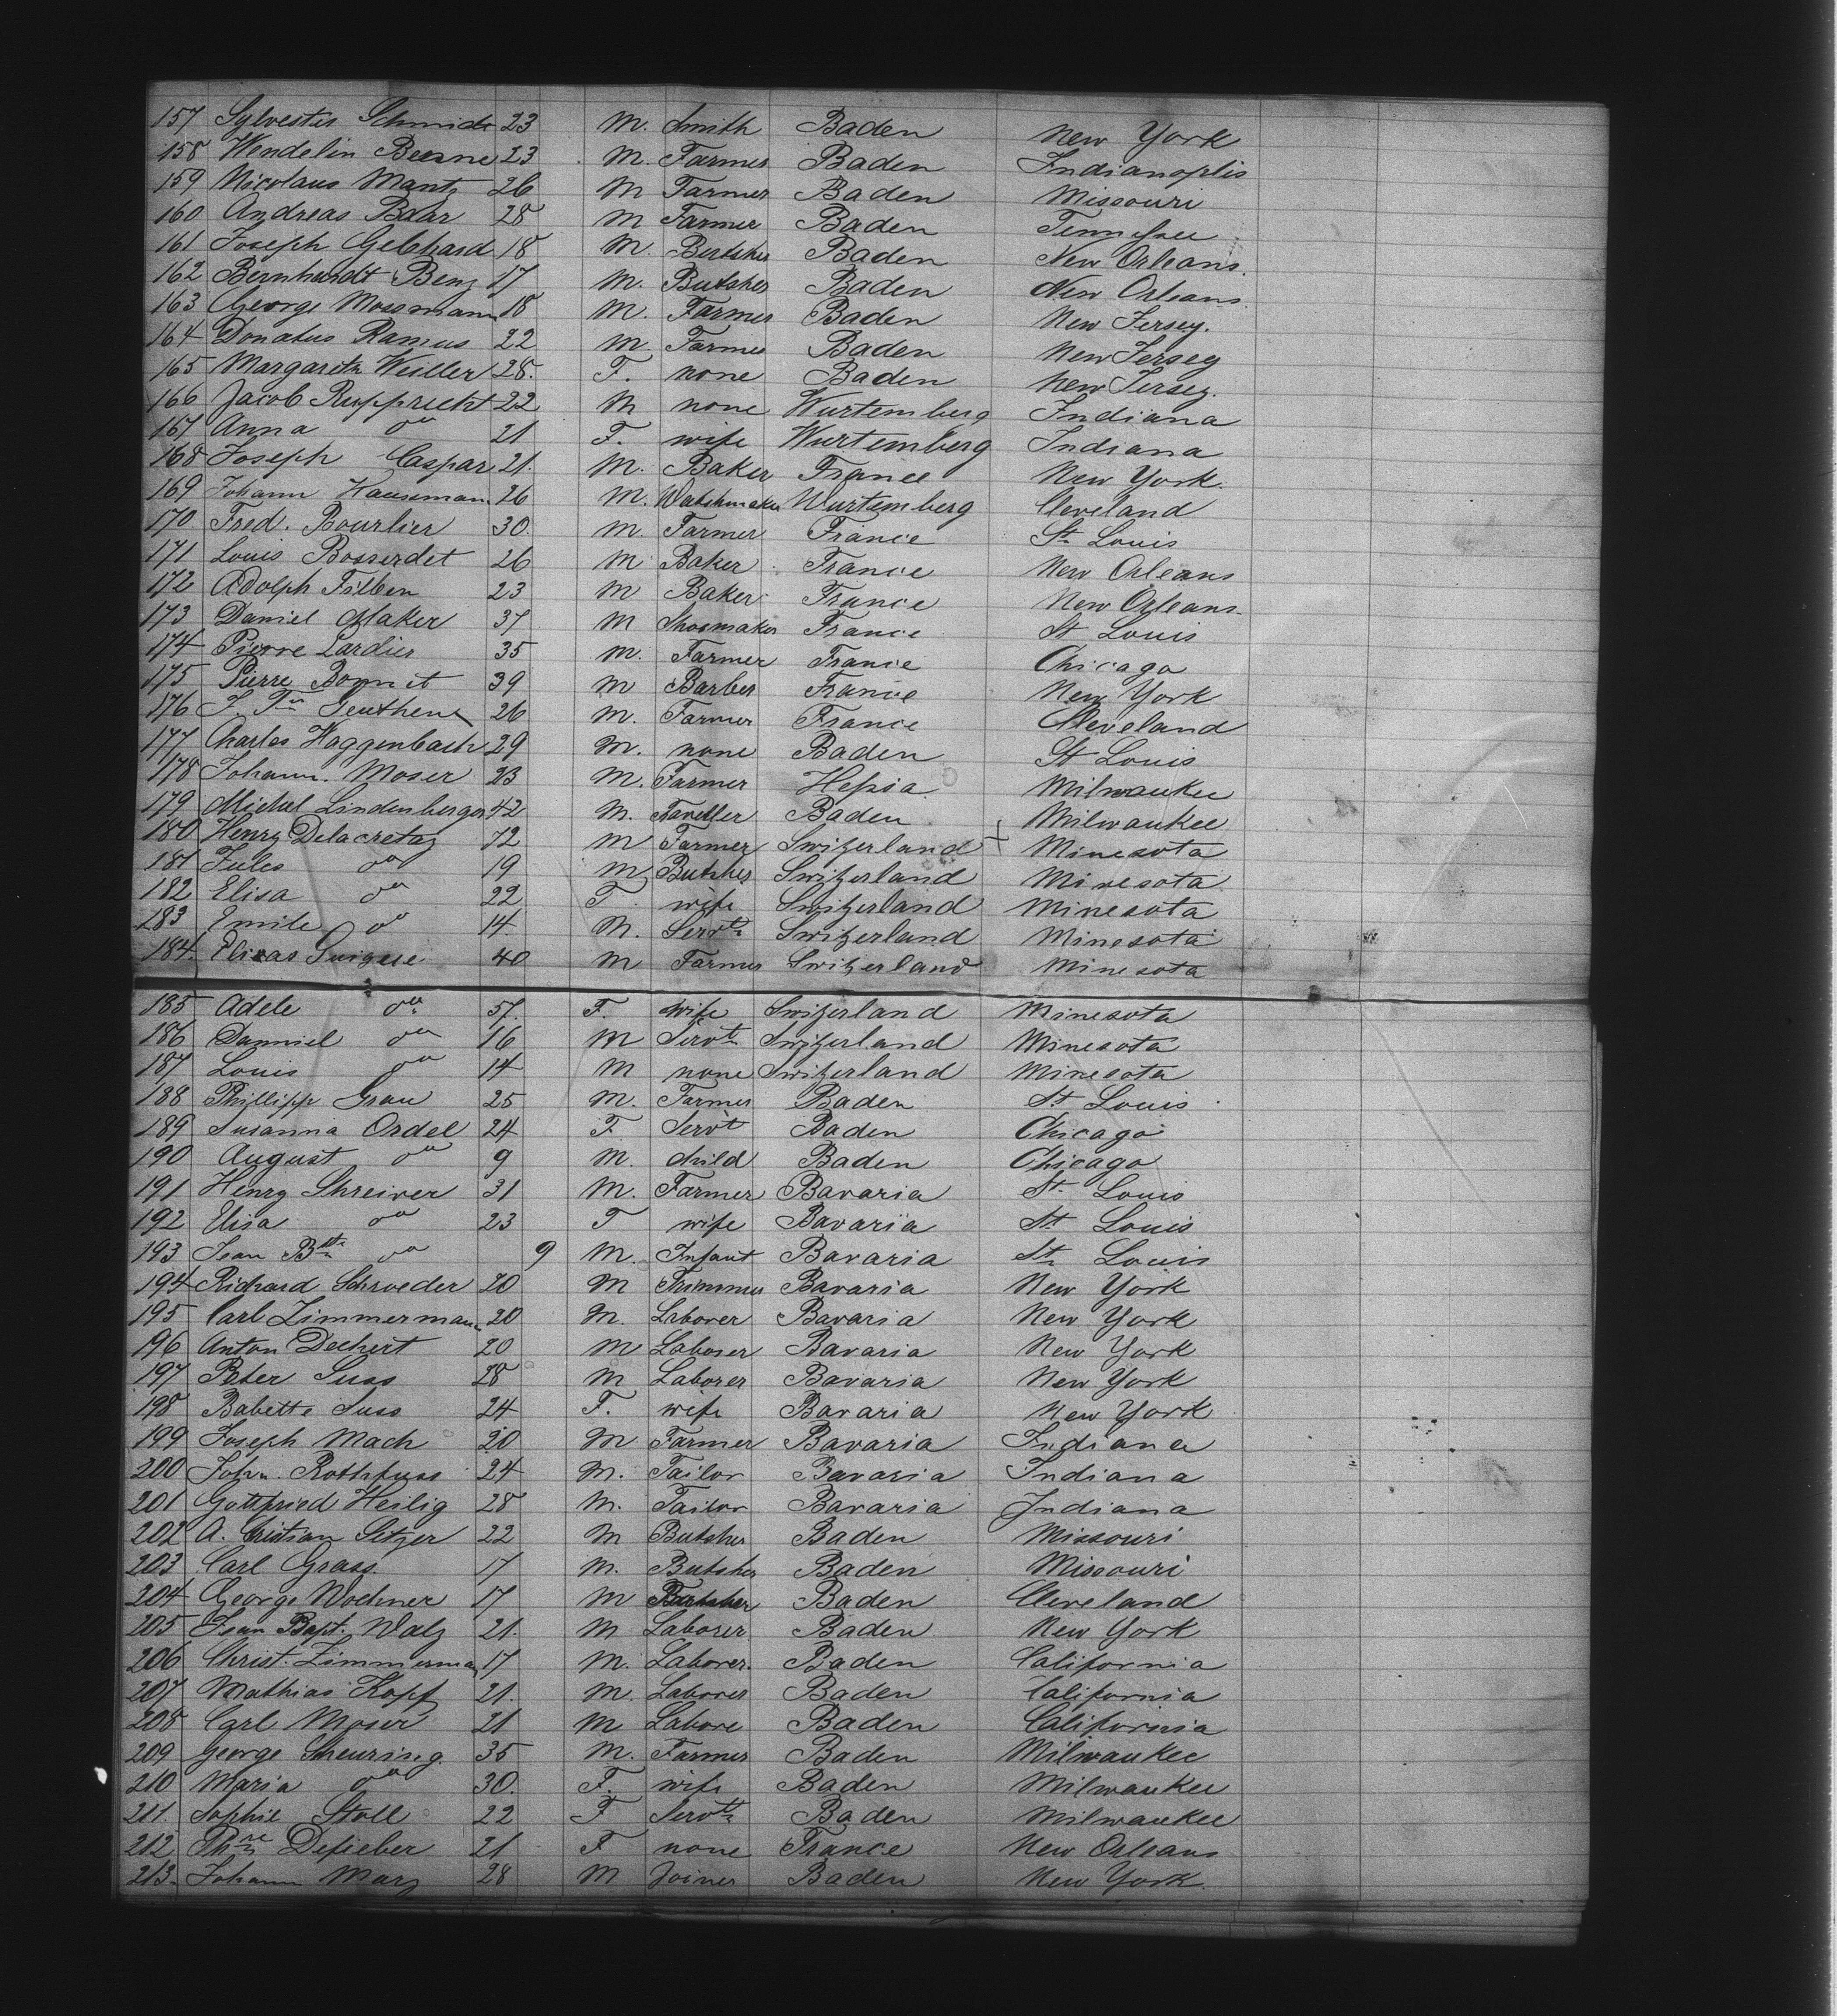 157 Sylvester Schmidt 23 M. Smith Baden New York
158 Wendelin 23 M. Farmer Baden Indianoplis
159 Nicolaus Mantz 26 M Farmer Baden Missouri
160 Andreas Baar 28 M Farmer Baden Tennessee
161 Joseph Gebhard 18 M. Butsher Baden New Orleans.
162 Bernhardt Benz 17 M. Butsher Baden New Orleans.
163 George Mossmann 18 M. Farmer Baden New Jersey.
164 Donatus Ramus 22 M. Farmer Baden New Jersey
165 Margaretha Weiller 28. F. none Baden New Jersey.
166 Jacob Rupprecht 22 M none Wurtemberg Indiana
167 Anna do 21 F. wife Wurtemberg Indiana
168 Joseph Caspar 21. M. Baker France New York.
169 Johann Haussmann 26 M. Watchmaker Wurtemberg Cleveland
170 Fred. Bourlier 30. M. Farmer France St. Louis
171 Louis Bosserdet 26 M Baker France New Orleans
172 Adolph Filben 23 M Baker France New Orleans.
173 Daniel Maker 37 M Shoemaker France St Louis
174 Pierre Lardier 35 M. Farmer France Chicago
175 Pierre Bonnet 39 M Barber France New York
176 J. 26 M. Farmer France Cleveland
177 Charles Haggenbach 29 M. none Baden St Louis
178 Johann. Moser 23 M. Farmer Hessia Milwaukee
179 Michel Lindenberger 42 M. Baden Milwaukee
180 Henry Delacretaz 72 M Farmer Switzerland + Minesota
181 Jules do 19 M Butsher Switzerland Minesota
182 Elisa do 22 F. wife Switzerland Minesota
183 Emile do 14 M. Servt. Switzerland Minesota
184. 40 M Farmer Switzerland Minesota
185 Adele do 37. F. wife Switzerland Minesota
186 Danniel do 16 M Servt. Switzerland Minesota
187 Louis do 14 M none Switzerland Minesota
188 Phillipp Grau 25 M. Farmer Baden St Louis
189 Susanna Ordel 24 F Servt Baden Chicago
190 August do 9 M. child Baden Chicago
191 Henry Shreiver 31 M. Farmer Bavaria St. Louis
192 Elisa do 23 F wife Bavaria St. Louis
193 Jean Bte do 9 M. Infant Bavaria St. Louis
194 Richard Schroeder 20 M Bavaria New York
195 Carl Zimmermann 20 M. Laborer Bavaria New York
196 Anton Dechert 20 M Laborer Bavaria New York
197 Peter Suss 28 M Laborer Bavaria New York
198 Babette Suss 24 F. wife Bavaria New York
199 Joseph Mach 20 M Farmer Bavaria Indiana
200 Joh. Rothfuss 24 M. Tailor Bavaria Indiana
201 Gottfried Heilig 28 M. Tailor Bavaria Indiana
202 A. Cristian Setzer 22 M Butsher Baden Missouri
203 Carl Grass. 17 M. Butsher Baden Missouri
204 George Wochner 17 M Butsher Baden Cleveland
205 Jean Bapt. Walz 21. M Laborer Baden New York
206 Christ. Zimmerman 17 M. Laborer. Baden California
207 Mathias Kopf 21. M. Laborer Baden California
208 Carl Moser 21 M Labore Baden California
209 George Sheuring. 35 M. Farmer Baden Milwaukee
210 Maria do 30. F. wife Baden Milwaukee
211. Sophie Stoll 22 F Servt. Baden Milwaukee
212 Defieber 21 F none France New Orleans
213. Johann Marz 28 M Joiner Baden New York.